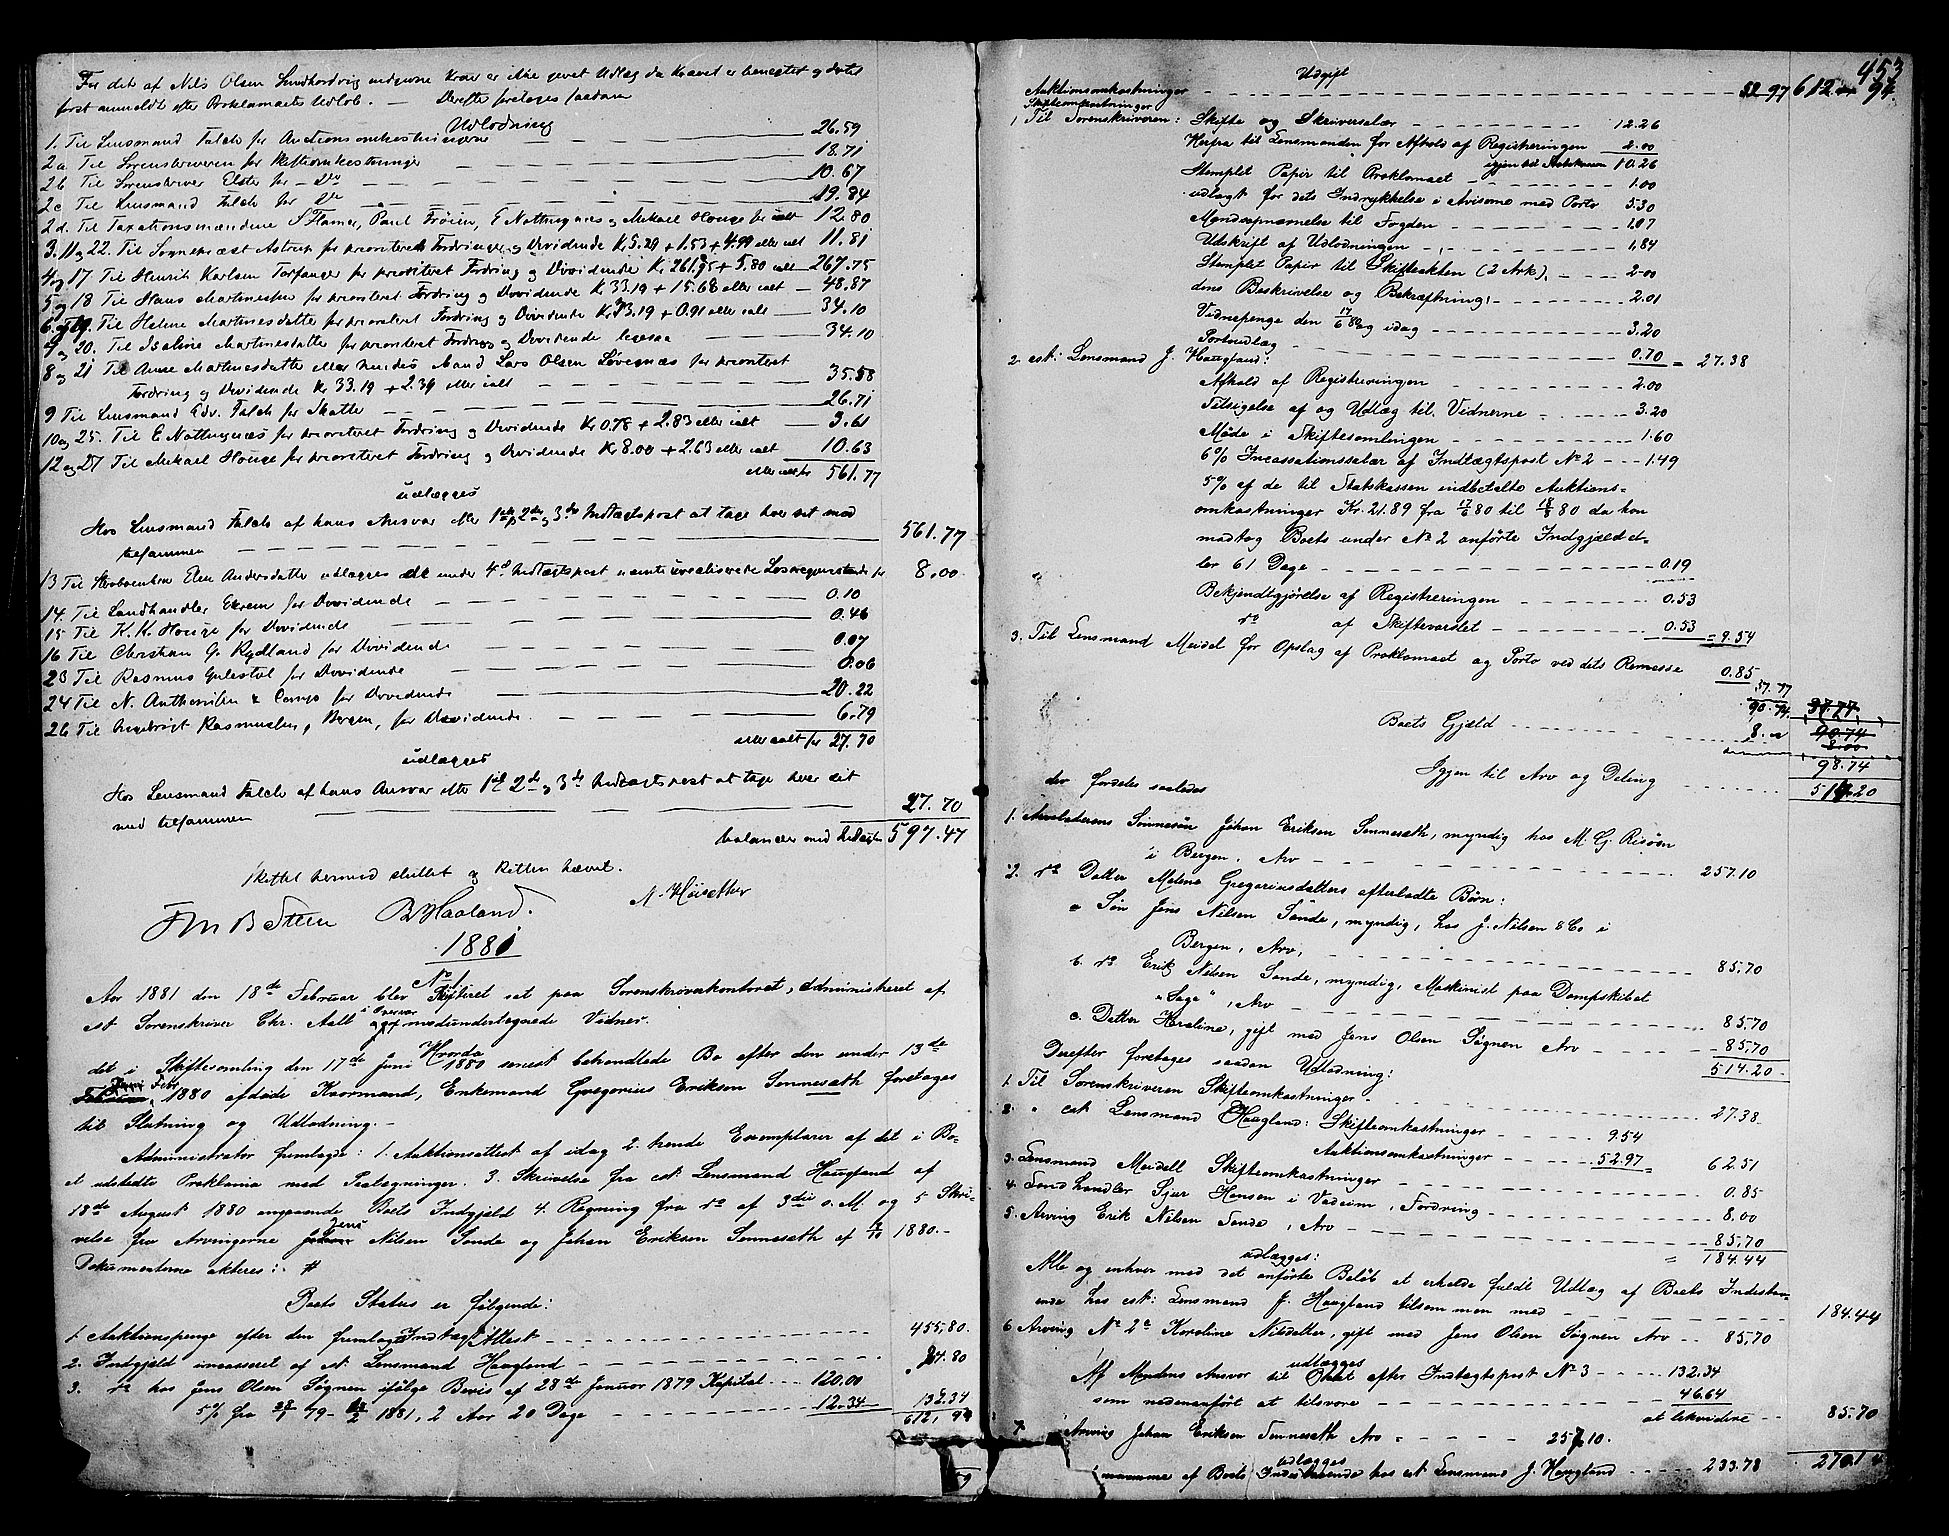 For det af Nils Olsen Sundhordvig indgivne Krav er ikke gevet Udlæg da Kravet er benegtet og dertil
først anmeldt efter Proklamaets Udløb. — Derefter foretages saadan
Udlodning
1. Til Lensmand Falch for Auctionsomkostningerne — 26.59
2a Til Sorenskriveren for Skifteomkostninger — 18.71
2b Til Sorenskriver Elster for — Do — 10.67
2c Til Lensmand Falch for Do — 19.84
2d. Til Taxationsmændene S Flamer, Paul Frøien, E Nottingnæs og Mikael Houge for ialt 12.80
3. 11 og 22. Til Sogneprest Astrup for prioriteret Fordringer og Dividende Kr 5.29 + 1.53 + 4.99 eller ialt 11.81
4 og 17 Til Henrik Karlsen Torfanger for prioriteret Fordring og Dividende Kr 261.95 + 5.80 ialt — 267.75
5 og 18 Til Hans Martinussen for prioriteret Fordring og Dividende Kr 33.19 + 15.68 eller ialt — 48.87
6 og 19. Til Helene Martinesdatter for prioriteret Fordring og Dividende Kr 33.19 + 0.91 eller ialt — 34.10
7 og 20. Til Iseline Martinesdatter for prioriteret Fordring og Dividende ligesaa — 34.10
8 og 21 Til Anne Martinesdatter eller hendes Mand Lars Olsen Løvegnæs for prioriteret
Fordring og Dividende Kr 33.19 + 2.39 eller ialt — 35.58
9 Til Lensmand Edv. Falch for Skatter — 26.71
10 og 25. Til E Nottingnæs for prioriteret Fordring og Dividende Kr 0.78 + 2.83 eller ialt — 3.61
12 og 27 Til Mikael Houge for prioriteret Fordring og Dividende Kr 8.00 + 2.63 eller ialt 10.63
eller ialt for 561.77
udlægges
Hos Lensmand Falch af hans Ansvar efter 1ste, 2den og 3de Indtægtspost at tage hver sit med
tilsammen — 561.77
13 Til Elen Andersdatter udlægges de under 4de Indtægtspost nævnte urealiserede Løsøregjenstande for 8.00
14. Til Landhandler Ekrem for Dividende — 0.10
15 Til K. K. Houge for Dividende — 0.46
16 Til Christian G. Rydland for Dividende — 0.07
23 Til Rasmus Gulestøl for Dividende — 0.06
24 Til N. Anthonisen & Comp for Dividende — 20.22
26 Til Ingebrigt Rasmussen, Bergen, for Dividende — 6.79
eller ialt for 27.70
udlægges
Hos Lensmand Falch af hans Ansvar efter 1ste 2den og 3die Indtægtspost at tage hver sit
med tilsammen — 27.70
balancerer med Indtægten 597.47
Skiftet hermed sluttet og Retten hævet.
B Steen B Haaland. N. Høisether
1881
No 1
Aar 1881 den 18de Februar blev Skifteret sat paa Sorenskriverkontoret, administreret af
cst Sorenskriver Chr. Aall i Overvær af medundertegnede Vidner.
Hvorda
det i Skiftesamling den 17de Juni 1880 senest behandlede Bo efter den under 13de
Febr 1880 afdøde Kaarmand, Enkemand Gregorius Eriksen Sønnesæth foretages
til Slutning og Udlodning. —
Administrator fremlagde: 1. Auktionsattest af idag 2. trende Exemplarer af det i Bo-
et udstedte Proklama med Paategninger. 3. Skrivelse fra cst. Lensmand Haugland af
18de August 1880 angaaende Boets Indgjæld 4. Regning fra do af 3die d. M. og 5 Skri-
velse fra Arvingerne Jens Nilsen Sande og Johan Eriksen Sønnesæth af 2/10 1880. —
Dokumenterne akteres: #
Boets Status er følgende:
Indtægt
1. Auktionspenge efter den fremlagte Attest — 455,80.
2. Indgjæld incasseret af cst. Lensmand Haugland — 24.80
3. do hos Jens Olsen Søgnen ifølge Bevis af 28de Januar 1879 Kapital 120.00
5% fra 28/1 79 - 18/2 1881, 2 Aar 20 Dage 12.34 132.34
612,94
453
Udgift 612 94
Auktionsomkostninger — 52 97
Skifteomkostninger
1 Til Sorenskriveren: Skifte og Skriversalær — 12.26
Herfra til Lensmanden for Afhold af Registreringen 2.00
igjen til Statskassen 10.26
Stemplet Papir til Proklamaet — 1.00
udlagt for dets Indrykkelse i Aviserne med Porto 5.30
Mændsopnævnelse til Fogden — 1.07
Udskrift af Udlodningen — 1,84
Stemplet Papir til Skifteakten (2 Ark), — 2.00
dens Beskrivelse og Bekræftning, — 2.01
Vidnepenge den 17/6 80 og idag — 3.20
Portoudlæg — 0.70 = 27.38
2. cst: Lensmand J. Haugland:
Afhold af Registreringen — 2.00
Tilsigelse af og Udlæg til Vidnerne — 3.20
Møde i Skiftesamlingen — 1.60
6% Incassationssalær af Indtægtspost No 2 — 1.49
5% af de til Statskassen indbetalte Auktions-
omkostninger Kr. 21.89 fra 17/6 80 til 18/8 80 da han
modtog Boets under No 2 anførte Indgjæld el-
ler 61 Dage — 0.19
Bekjendtgjørelse af Registreringen — 0.53
do af Skiftevarslet — 0.53 = 9.54
3. Til Lensmand Meidel for Opslag af Proklamaet og Porto ved dets Remesse 0.85
37.77
90.74
Boets Gjæld — 8.00
98.74
Igjen til Arv og Deling — 514.20
der fordeles saaledes
1. Arveladerens Sønnesøn Johan Eriksen Sønnesæth, myndig hos M. G. Risøen
i Bergen, Arv — 257.10
2. do Datter Malene Gregoriusdatters efterladte Børn:
a Søn Jens Nilsen Sande, myndig, hos J. Nilsen & Co i
Bergen, Arv, — 85.70
b. do Erik Nilsen Sande, myndig, Maskinist paa Dampskibet
"Saga", Arv — 85.70
c. Datter Karoline, gift med Jens Olsen Søgnen Arv — 85,70
514.20
Derefter foretages saadan Udlodning:
1. Til Sorenskriveren Skifteomkostninger — 27.38
2 " cst Lensmand Haugland: Skifteomkostninger — 9.54
Auktionsomkostninger — 52.97 62.51
3. Lensmand Meidell Skifteomkostninger — 0.85
4. Landhandler Sjur Hansen i Vadeim, Fordring — 8.00
5. Arving Erik Nilsen Sande, Arv — 85,70
= 184.44
udlægges:
Alle og enhver med det anførte Beløb at erholde fuldt Udlæg af Boets Indestaa-
ende hos cst: Lensmand J. Haugland tilsammen med — 184.44
6 Arving No 2c Karoline Nilsdatter, gift med Jens Olsen Søgnen Arv — 85,70
udlægges
Af Mandens Ansvar til Boet efter Indtægtspost No 3 — 132.34
som nedenanført at tilsvare — 46.64
at likvidere — 85.70
7. Arving Johan Eriksen Sønnesæth Arv — 257,10.
udlægges
af Boets Indestaaende hos cst Lensmand J. Haugland — 233.78 270.14